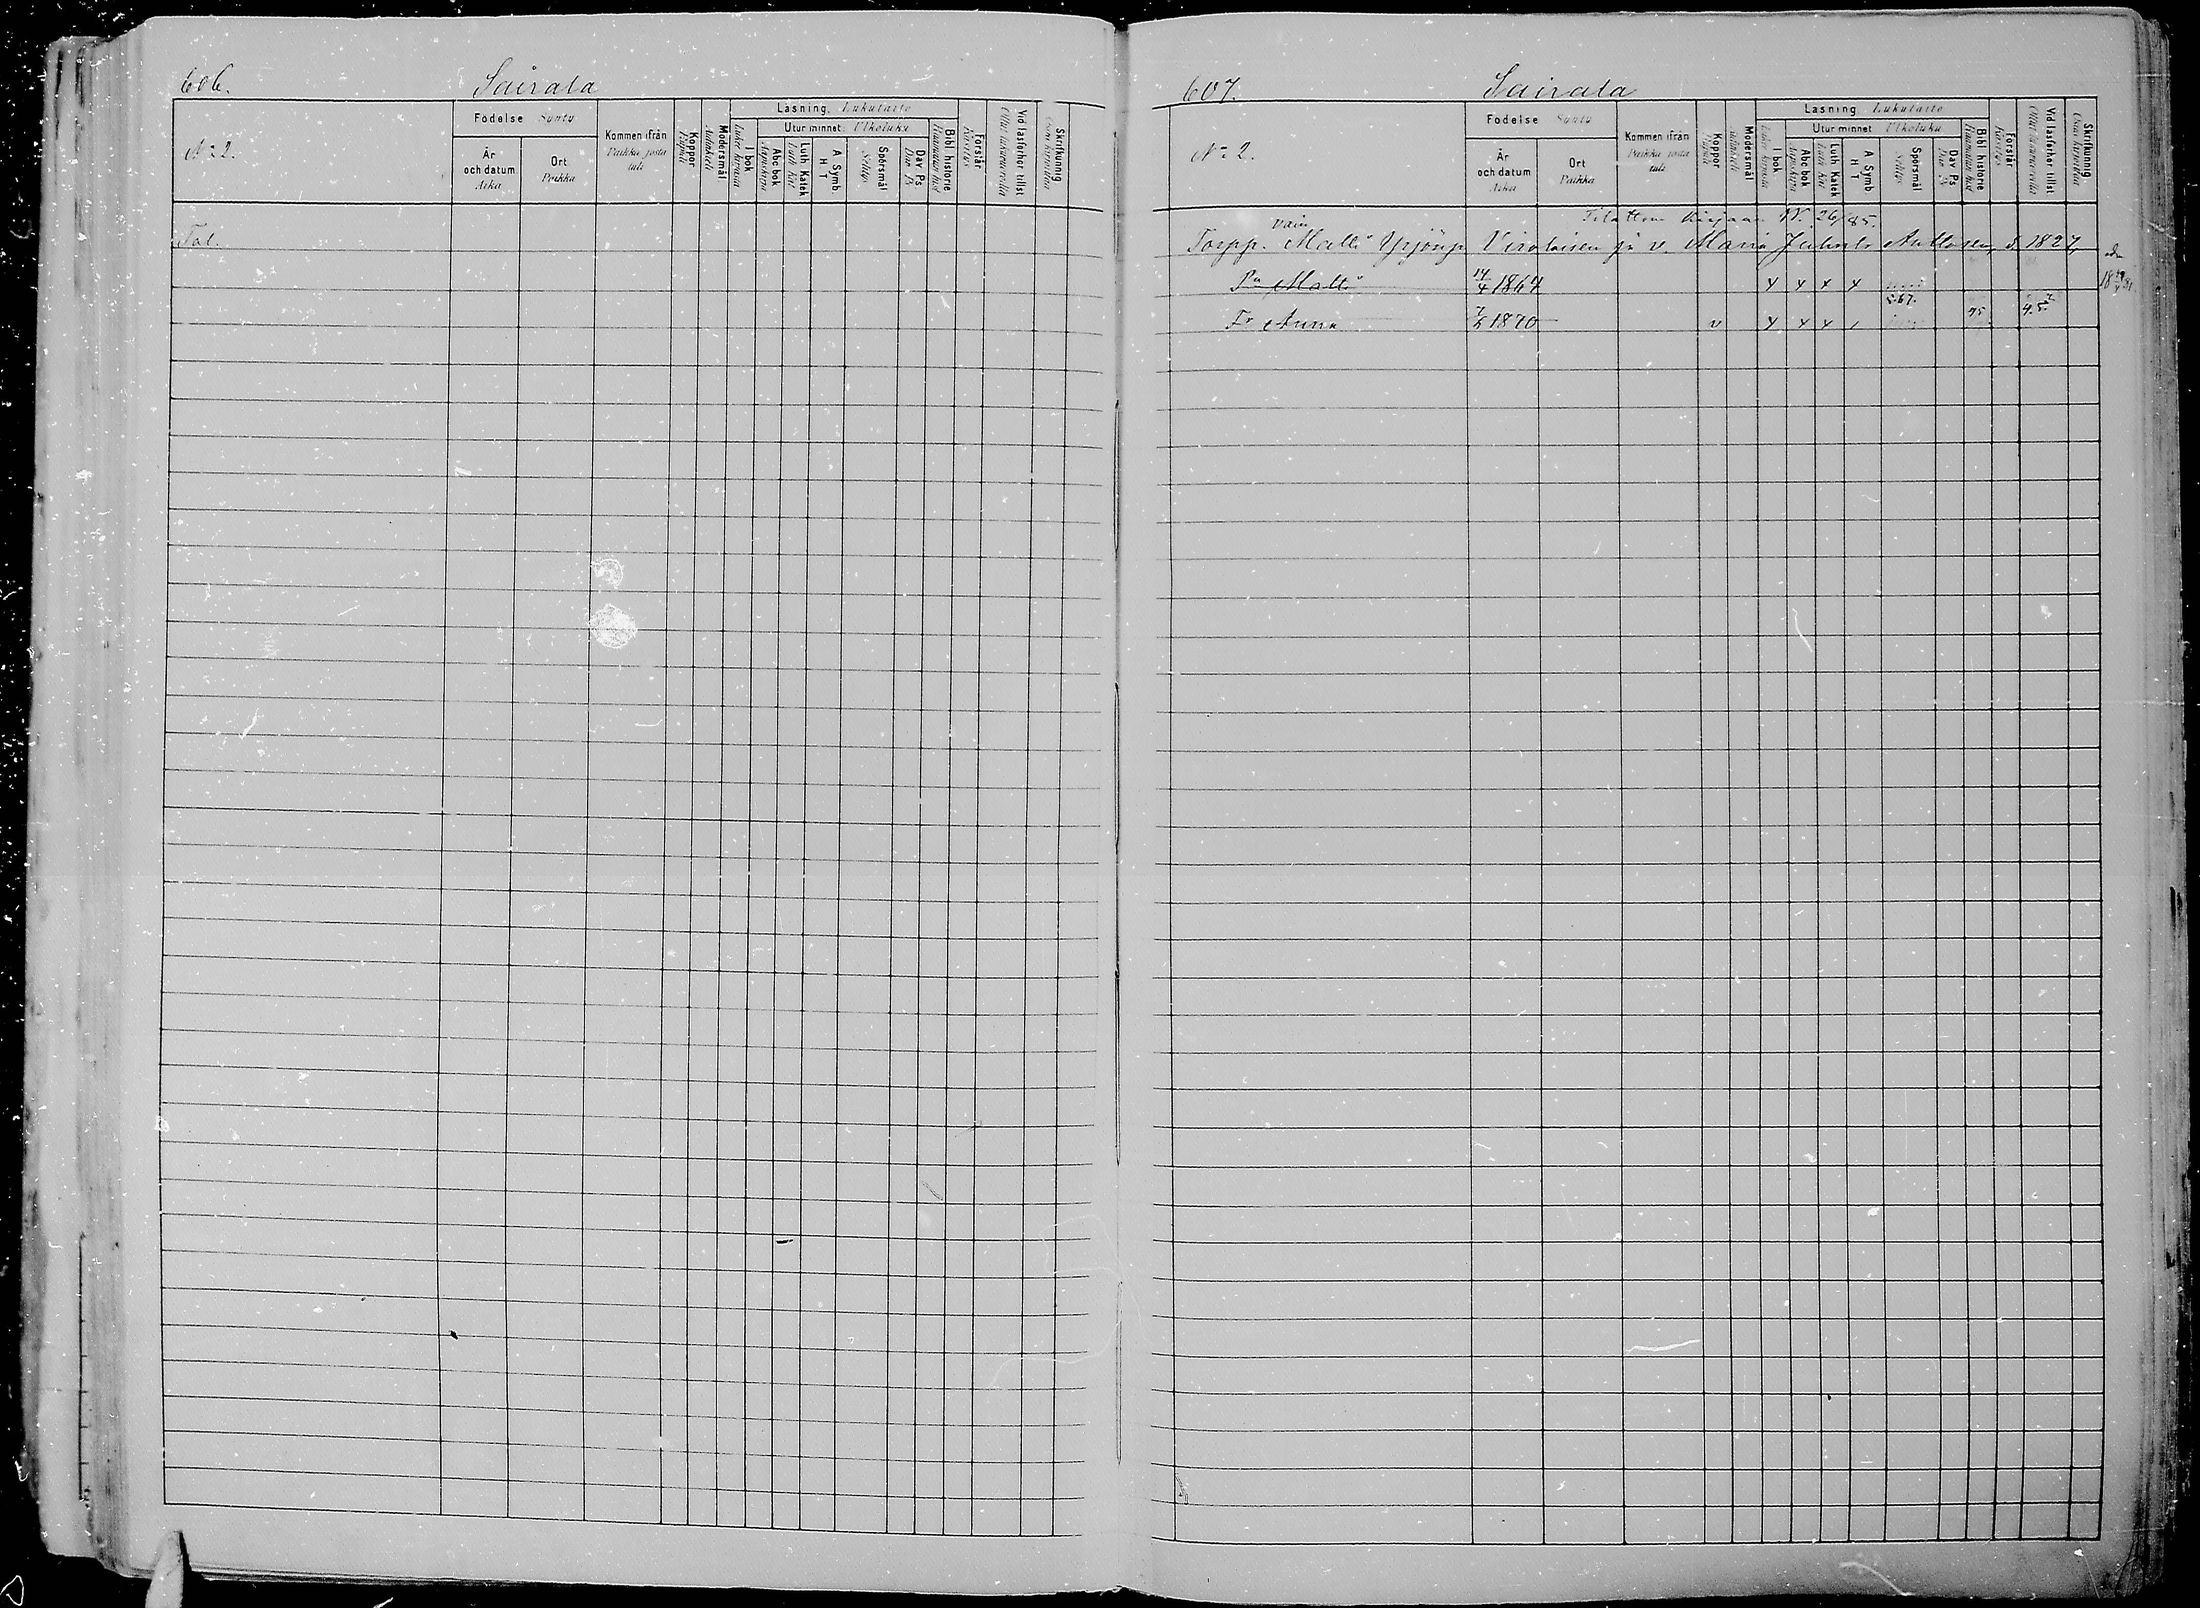 606.
Sairala
N:o 2.
Födelse Synty
År och datum Aika
Ort Paikka
Kommen ifrån Paikka josta tuli
Koppor
Modersmål Äitinkieli
Läsning. Lukutaito
I bok Lukee kirjasta
Utur minnet: Ulkoluku
Abc bok Aapiskirja
Luth Katek Luth Kat
A Symb. H T
Spörsmål Selitys
Dav Ps Dav Ps
Bibl historie Raamatun hist
Förstår Käsitys
Vid läsförhör tillst.
Skrifkunnig Osaa kirjoittaa
Tal.
607.
Sairala
N:o 2.
Födelse Synty
År och datum Aika
Ort Paikka
Kommen ifrån Paikka josta tuli
Koppor
Modersmål Äitinkieli
Läsning Lukutaito
I bok Lukee kirjasta
Utur minnet Ulkoluku
Abc bok Aapiskirja
Luth Katek Luth Kat
A Symb H T
Spörsmål Selitys
Dav Ps Dav Ps
Bibl historie Raamatun hist
Förstår Käsitys
Vid läsförhör tillst.
Skrifkunnig Osaa kirjoittaa
Tilattom kirjaan IV. 26/85.
vain
Torpp. Matti Yrjönp. Virolaisen ja v. Maria Juhont. Anttosen, s. 1827,
Pa Matti 14/4 1867 x x x x
67.
Tr Anna 7/5 1870 v x x x 75 4.5